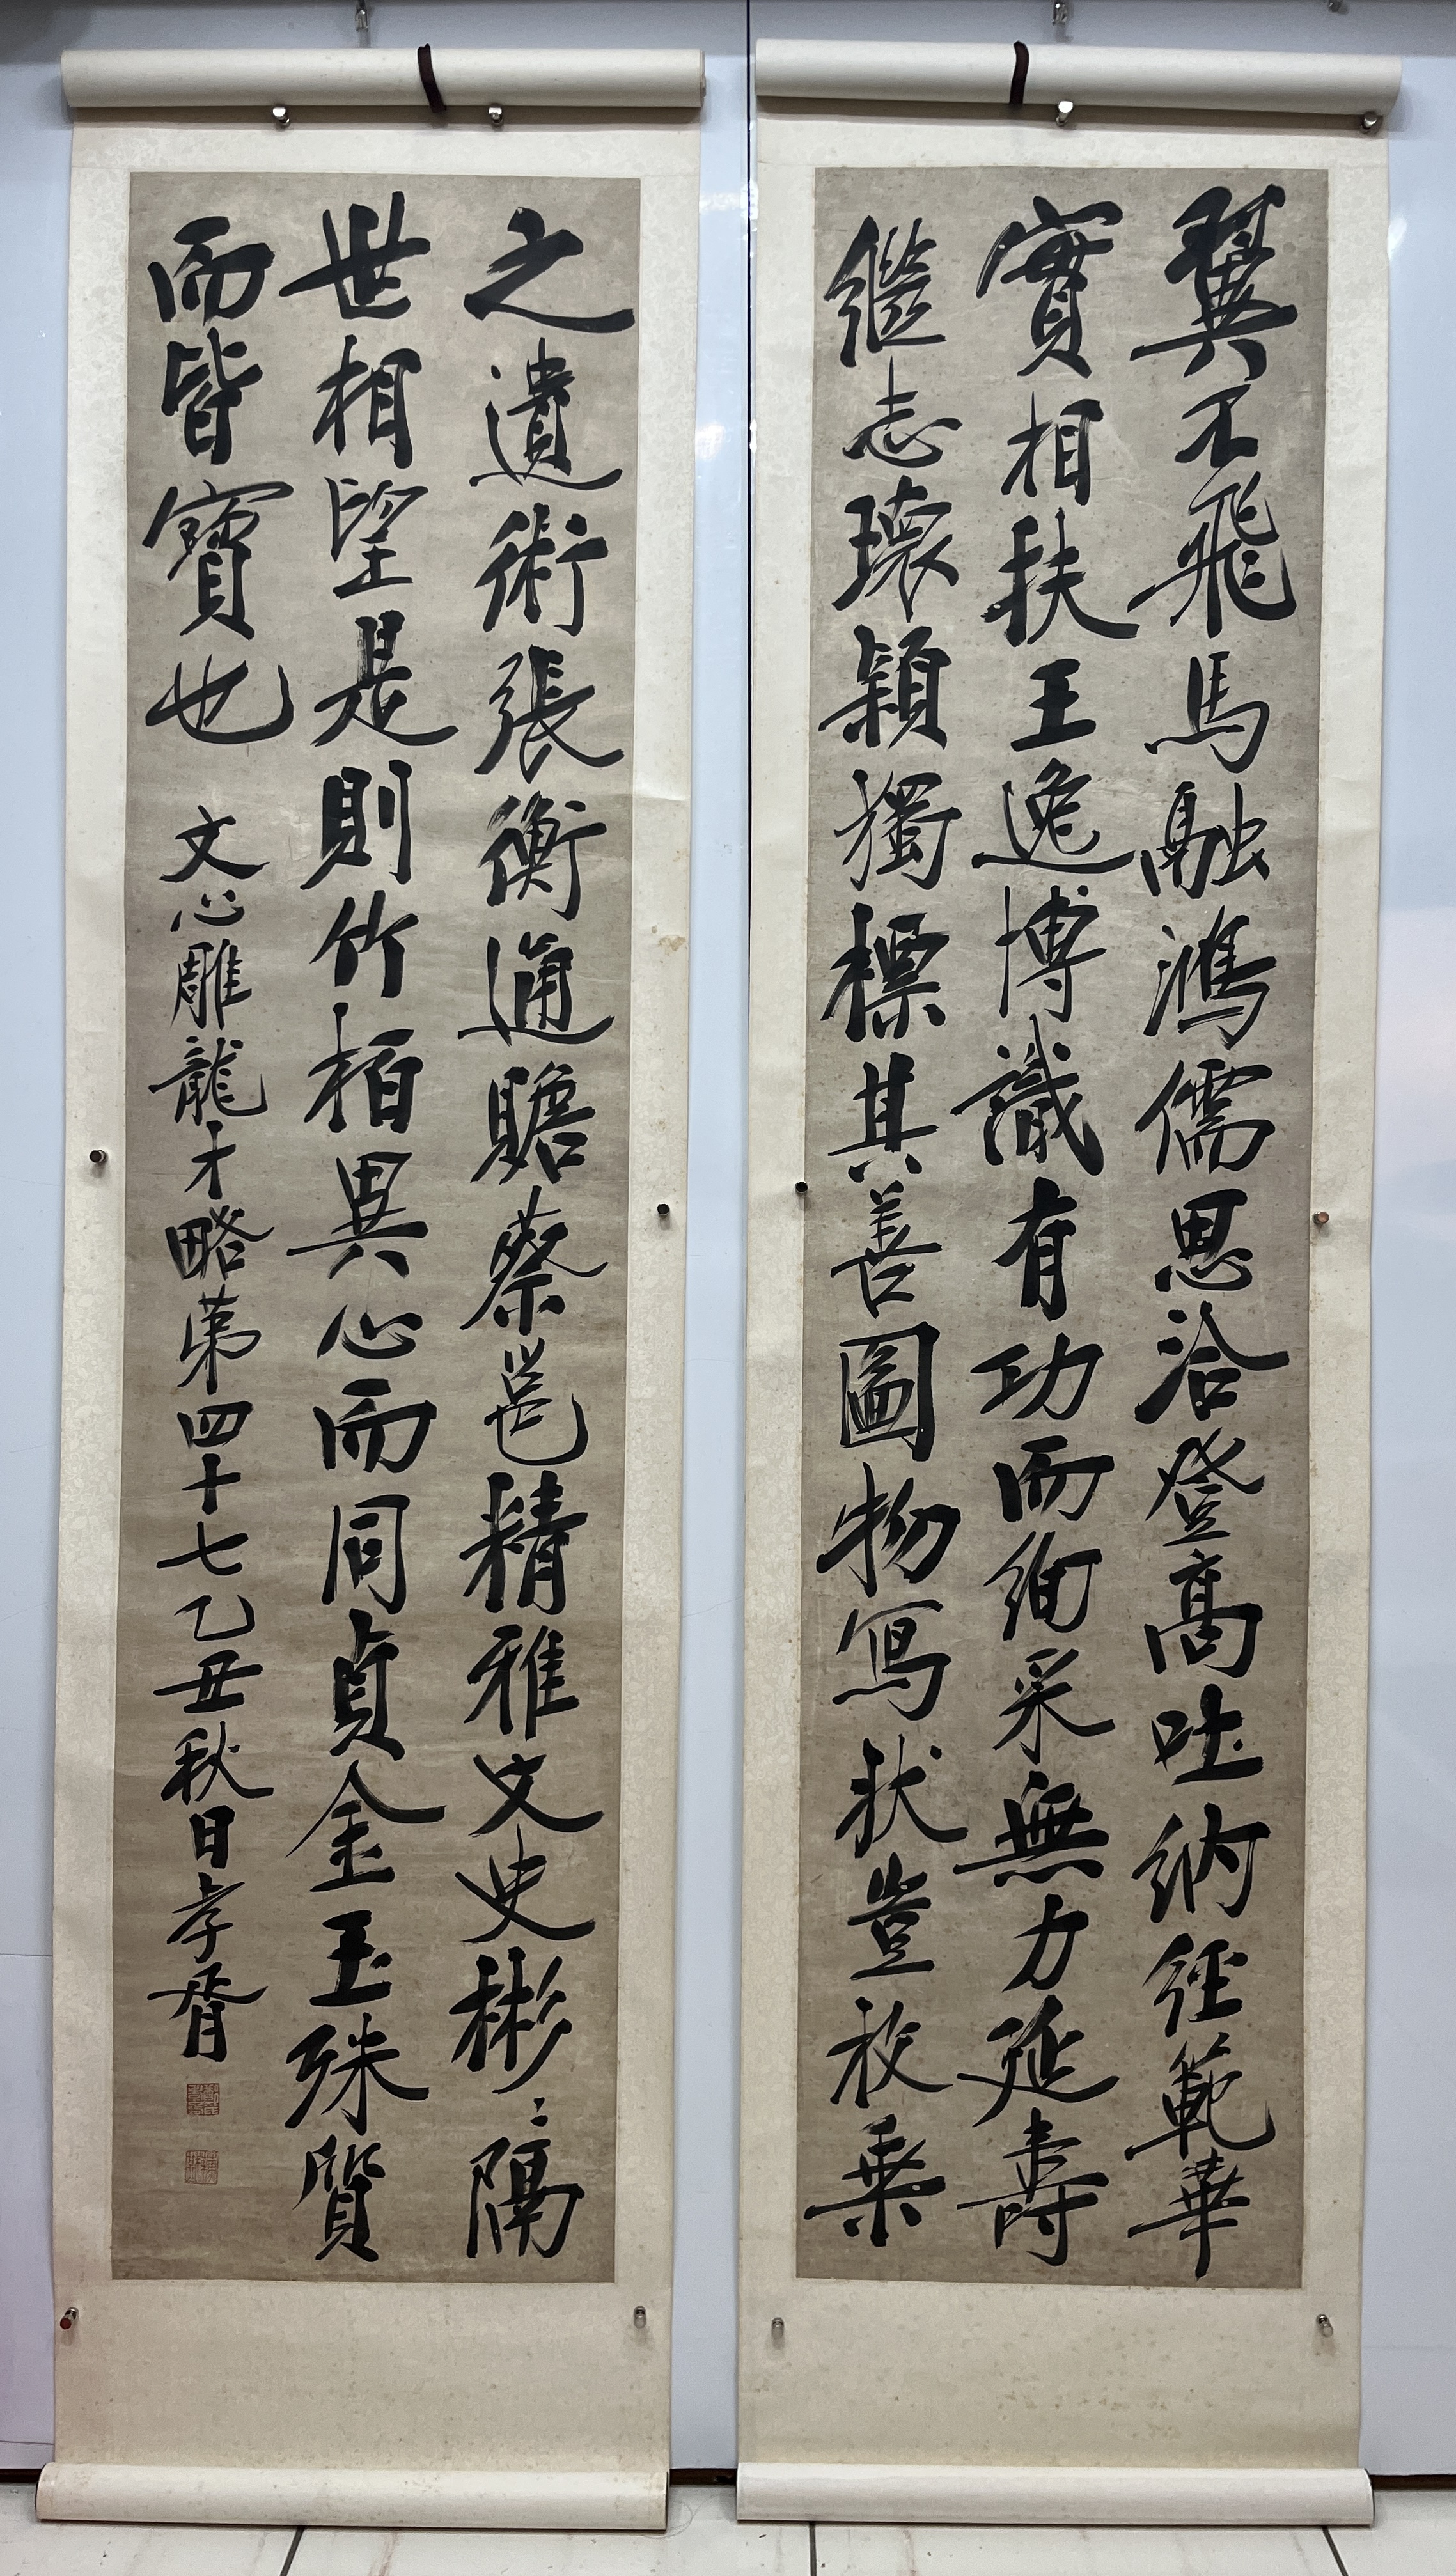 翼不飛馬融鴻儒思洽登高吐納經範華
實相扶王逸博識有功而絢采無力延壽
繼志瓌穎獨標其善圖物寫狀豈枚乘
之遺術張衡通贍蔡邕精雅文史彬〻隔
世相望是則竹柏異心而同貞金玉殊質
而皆寶也 文心雕龍才略第四十七乙丑秋日孝胥